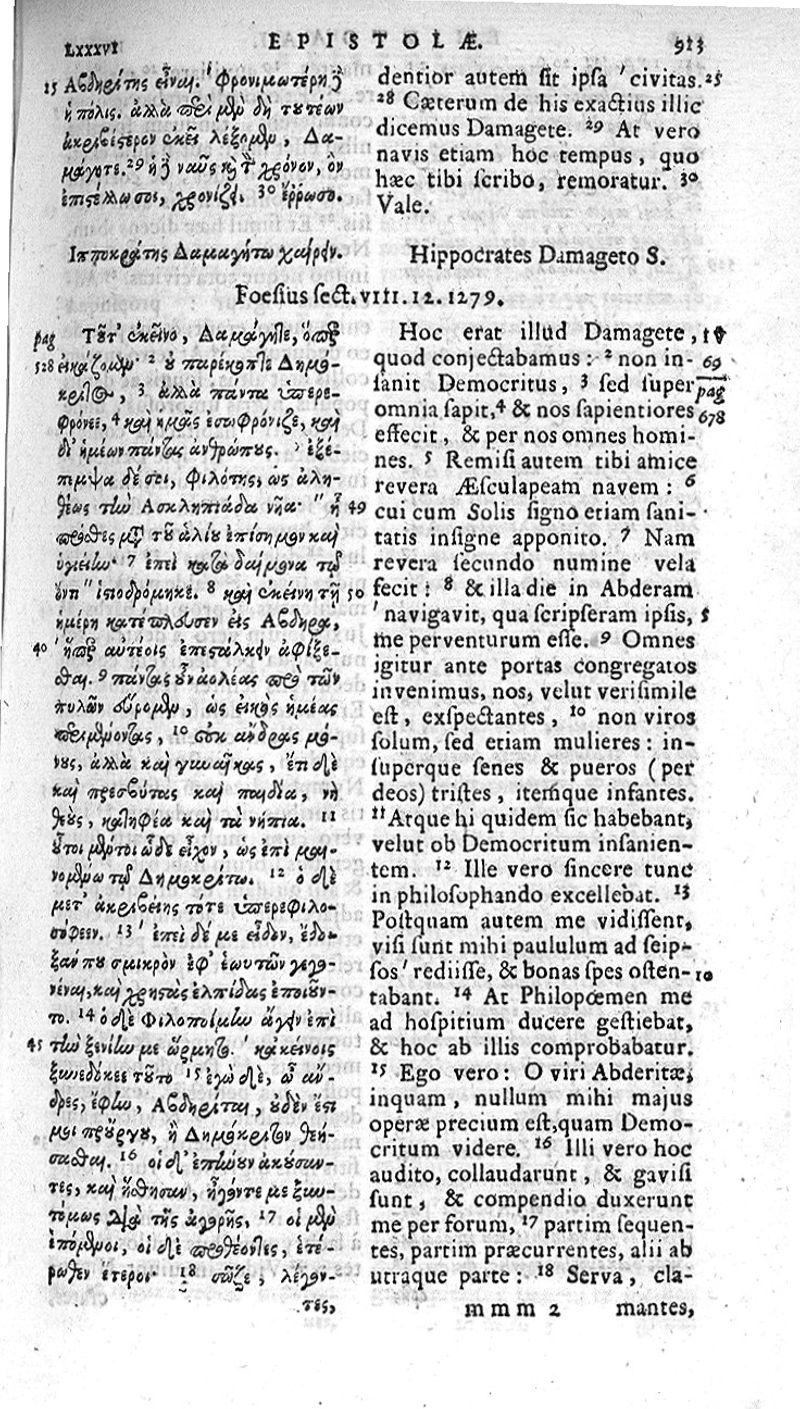 LXXXVI EPISTOLÆ. 913
15 Ἀβδηρίτης εἶναι. Φρονιμωτέρη δὲ
ἡ πόλις. ἀλλὰ περὶ μὲν δὴ τουτέων
ἀκριβέστερον ἐκεῖ λέξομεν, Δα-
μάγητε. 29 ἡ δὲ ναῦς καὶ τὸν χρόνον, ὃν
ἐπιστέλλωσοι, χρονίζει. 30 ἔῤῥωσο.
Ἱπποκράτης Δαμαγήτῳ χαίρειν.
dentior autem sit ipsa 'civitas. 25
28 Cæterum de his exactius illic
dicemus Damagete. 29 At vero
navis etiam hoc tempus, quo
hæc tibi scribo, remoratur. 30
Vale.
Hippocrates Damageto S.
Foesius sect. VIII. 12. 1279.
pag Τοῦτ' ἐκεῖνο, Δαμάγητε, ὅπερ
528 εἰκάζομεν· 2 οὐ παρέκοπτε Δημό-
κριτος, 3 ἀλλὰ πάντα ὑπερε-
φρόνεε, 4 καὶ ἡμᾶς ἐσωφρόνιζε, καὶ
δι' ἡμέων πάντας ἀνθρώπους. 5 ἐξέ-
πεμψα δέ σοι, φιλότης, ὡς ἀλη-
θέως τὴν Ἀσκληπιάδα νῆα· " ᾗ 49
πρόσθες μετὰ τοῦ ἁλίου ἐπίσημον καὶ
ὑγιείην· 7 ἐπεὶ κατὰ δαίμονα τῷ
ὄντι " ἱστιοδρόμηκε. 8 καὶ ἐκείνῃ τῇ 50
ἡμέρῃ κατέπλευσεν εἰς Ἄβδηρα,
40 ' ᾗπερ αὐτέοις ἐπεστάλκειν ἀφίξε-
σθαι. 9 πάντας οὖν ἀολέας πρὸ τῶν
πυλῶν εὕρομεν, ὡς εἰκὸς ἡμέας
περιμένοντας, 10 οὐκ ἄνδρας μό-
νους, ἀλλὰ καὶ γυναῖκας, ἔτι δὲ
καὶ πρεσβύτας καὶ παιδία, νὴ
θεοὺς, κατηφέα καὶ τὰ νήπια. 11
οὗτοι μέντοι ὧδε εἶχον, ὡς ἐπὶ μαι-
νομένῳ τῷ Δημοκρίτῳ. 12 ὁ δὲ
μετ' ἀκριβείης τότε ὑπερεφιλο-
σόφεεν. 13 ' ἐπεὶ δέ με εἶδον, ἔδο-
ξάν που σμικρὸν ἐφ' ἑωυτῶν γεγο-
νέναι, καὶ χρηστὰς ἐλπίδας ἐποιοῦν-
το. 14 ὁ δὲ Φιλοποίμην ἄγειν ἐπὶ
45 τὴν ξενίην με ὥρμητο. ' κἀκείνοις
ξυνεδόκεε τοῦτο 15 ἐγὼ δὲ, ὦ ἄν-
δρες, ἔφην, Ἀβδηρῖται, οὐδὲν ἔστι
μοι προὔργου, ἢ Δημόκριτον θεή-
σασθαι. 16 οἱ δ' ἐπῄνουν ἀκούσαν-
τες, καὶ ἥσθησαν, ἦγόντε με ξυν-
τόμως διὰ τῆς ἀγορῆς, 17 οἱ μὲν
ἑπόμενοι, οἱ δὲ προθέοντες, ἑτέ-
ρωθεν ἕτεροι· 18 σῶζε, λέγον-
τες,
Hoc erat illud Damagete,
quod conjectabamus: 2 non in- 69
sanit Democritus, 3 sed super pag
omnia sapit, 4 & nos sapientiores 678
effecit, & per nos omnes homi-
nes. 5 Remisi autem tibi amice
revera Æsculapeam navem: 6
cui cum Solis signo etiam sani-
tatis insigne apponito. 7 Nam
revera secundo numine vela
fecit: 8 & illa die in Abderam
' navigavit, qua scripseram ipsis, 5
me perventurum esse. 9 Omnes
igitur ante portas congregatos
invenimus, nos, velut verisimile
est, exspectantes, 10 non viros
solum, sed etiam mulieres: in-
superque senes & pueros (per
deos) tristes, itemque infantes.
11 Atque hi quidem sic habebant,
velut ob Democritum insanien-
tem. 12 Ille vero sincere tunc
in philosophando excellebat. 13
Postquam autem me vidissent,
visi sunt mihi paululum ad seip-
sos ' rediisse, & bonas spes osten- 10
tabant. 14 At Philopœmen me
ad hospitium ducere gestiebat,
& hoc ab illis comprobabatur.
15 Ego vero: O viri Abderitæ,
inquam, nullum mihi majus
operæ precium est, quam Demo-
critum videre. 16 Illi vero hoc
audito, collaudarunt, & gavisi
sunt, & compendio duxerunt
me per forum, 17 partim sequen-
tes, partim præcurrentes, alii ab
utraque parte: 18 Serva, cla-
mmm 2 mantes,